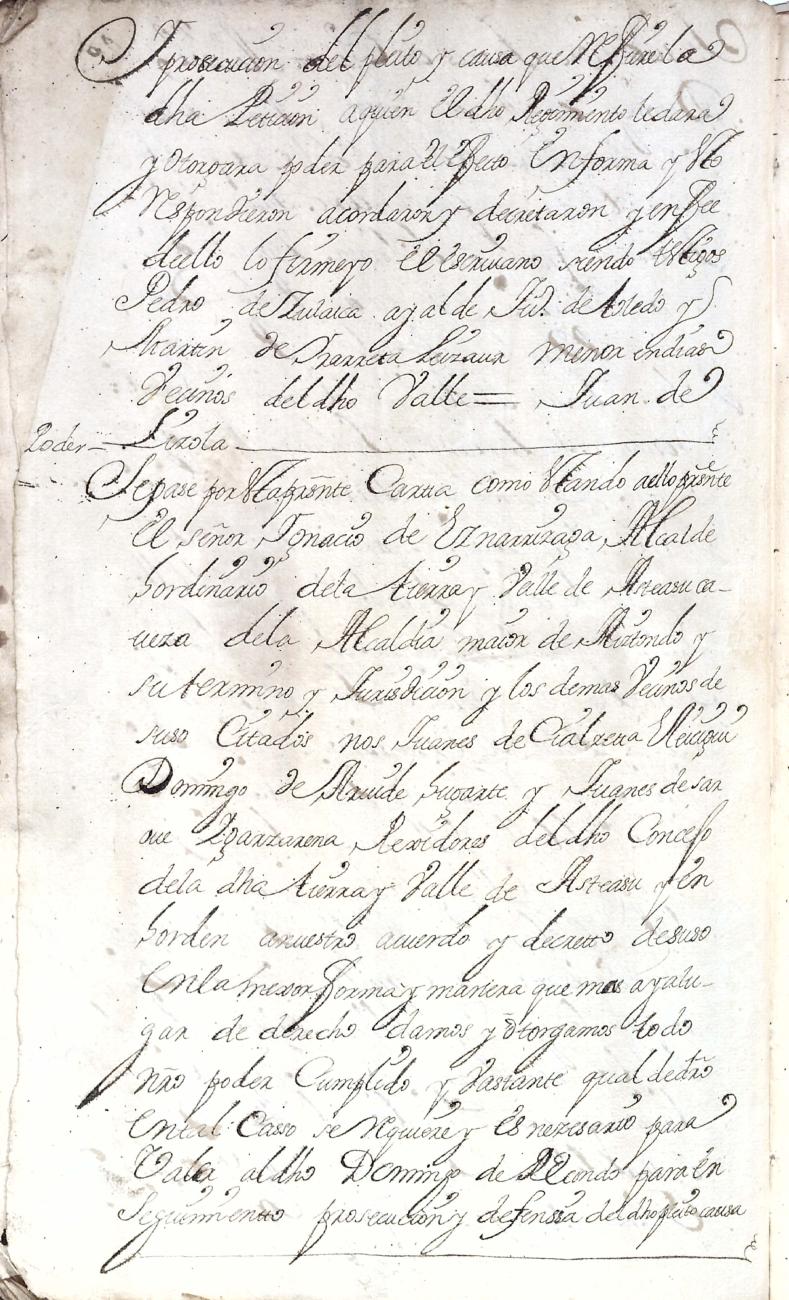 prosecucion del pleito y causa que Refiere la
dha Peticion aquien El dho Regimiento ledara
y otorgara poder para El Efecto En forma y Sto
Respondieron acordaron y decretaron y en ffee
deello lo firme yo El escriuano siendo testigos
Pedro de Zulaica ayalde Jul. de toledo y
Martin de Yrarreta Leizaur menor en dias
Vecinos del dho Valle = Juan de
Poder = Lizola
Sepase por Sta pressnte Carta como Stando aello pressnte
El señor Ignacio de Eznarrizaga Alcalde
hordinario dela tierra y Valle de Asteasu ca-
ueza dela Alcaldia maior de Aiztondo y
su termino y Jurisdicion y los demas Vecinos de
suso Citados nos Juanes de
Domingo de hugarte y Juanes de sar
oue Ygarzarena Rexidores del dho Concejo
dela dha tierra y Valle de Asteasu y en
horden anuestro acuerdo y decretto desuso
En la mexor fforma y maniera que mas aya lu-
gar de derecho damos y otorgamos todo
nro poder Cumplido y Vastante qual de dro
En tal Casso se Requiere y Es nezesario para
Vala al dho Domingo de Recondo para En
Seguimientto prosecucion y defenssa del dho pleito causa